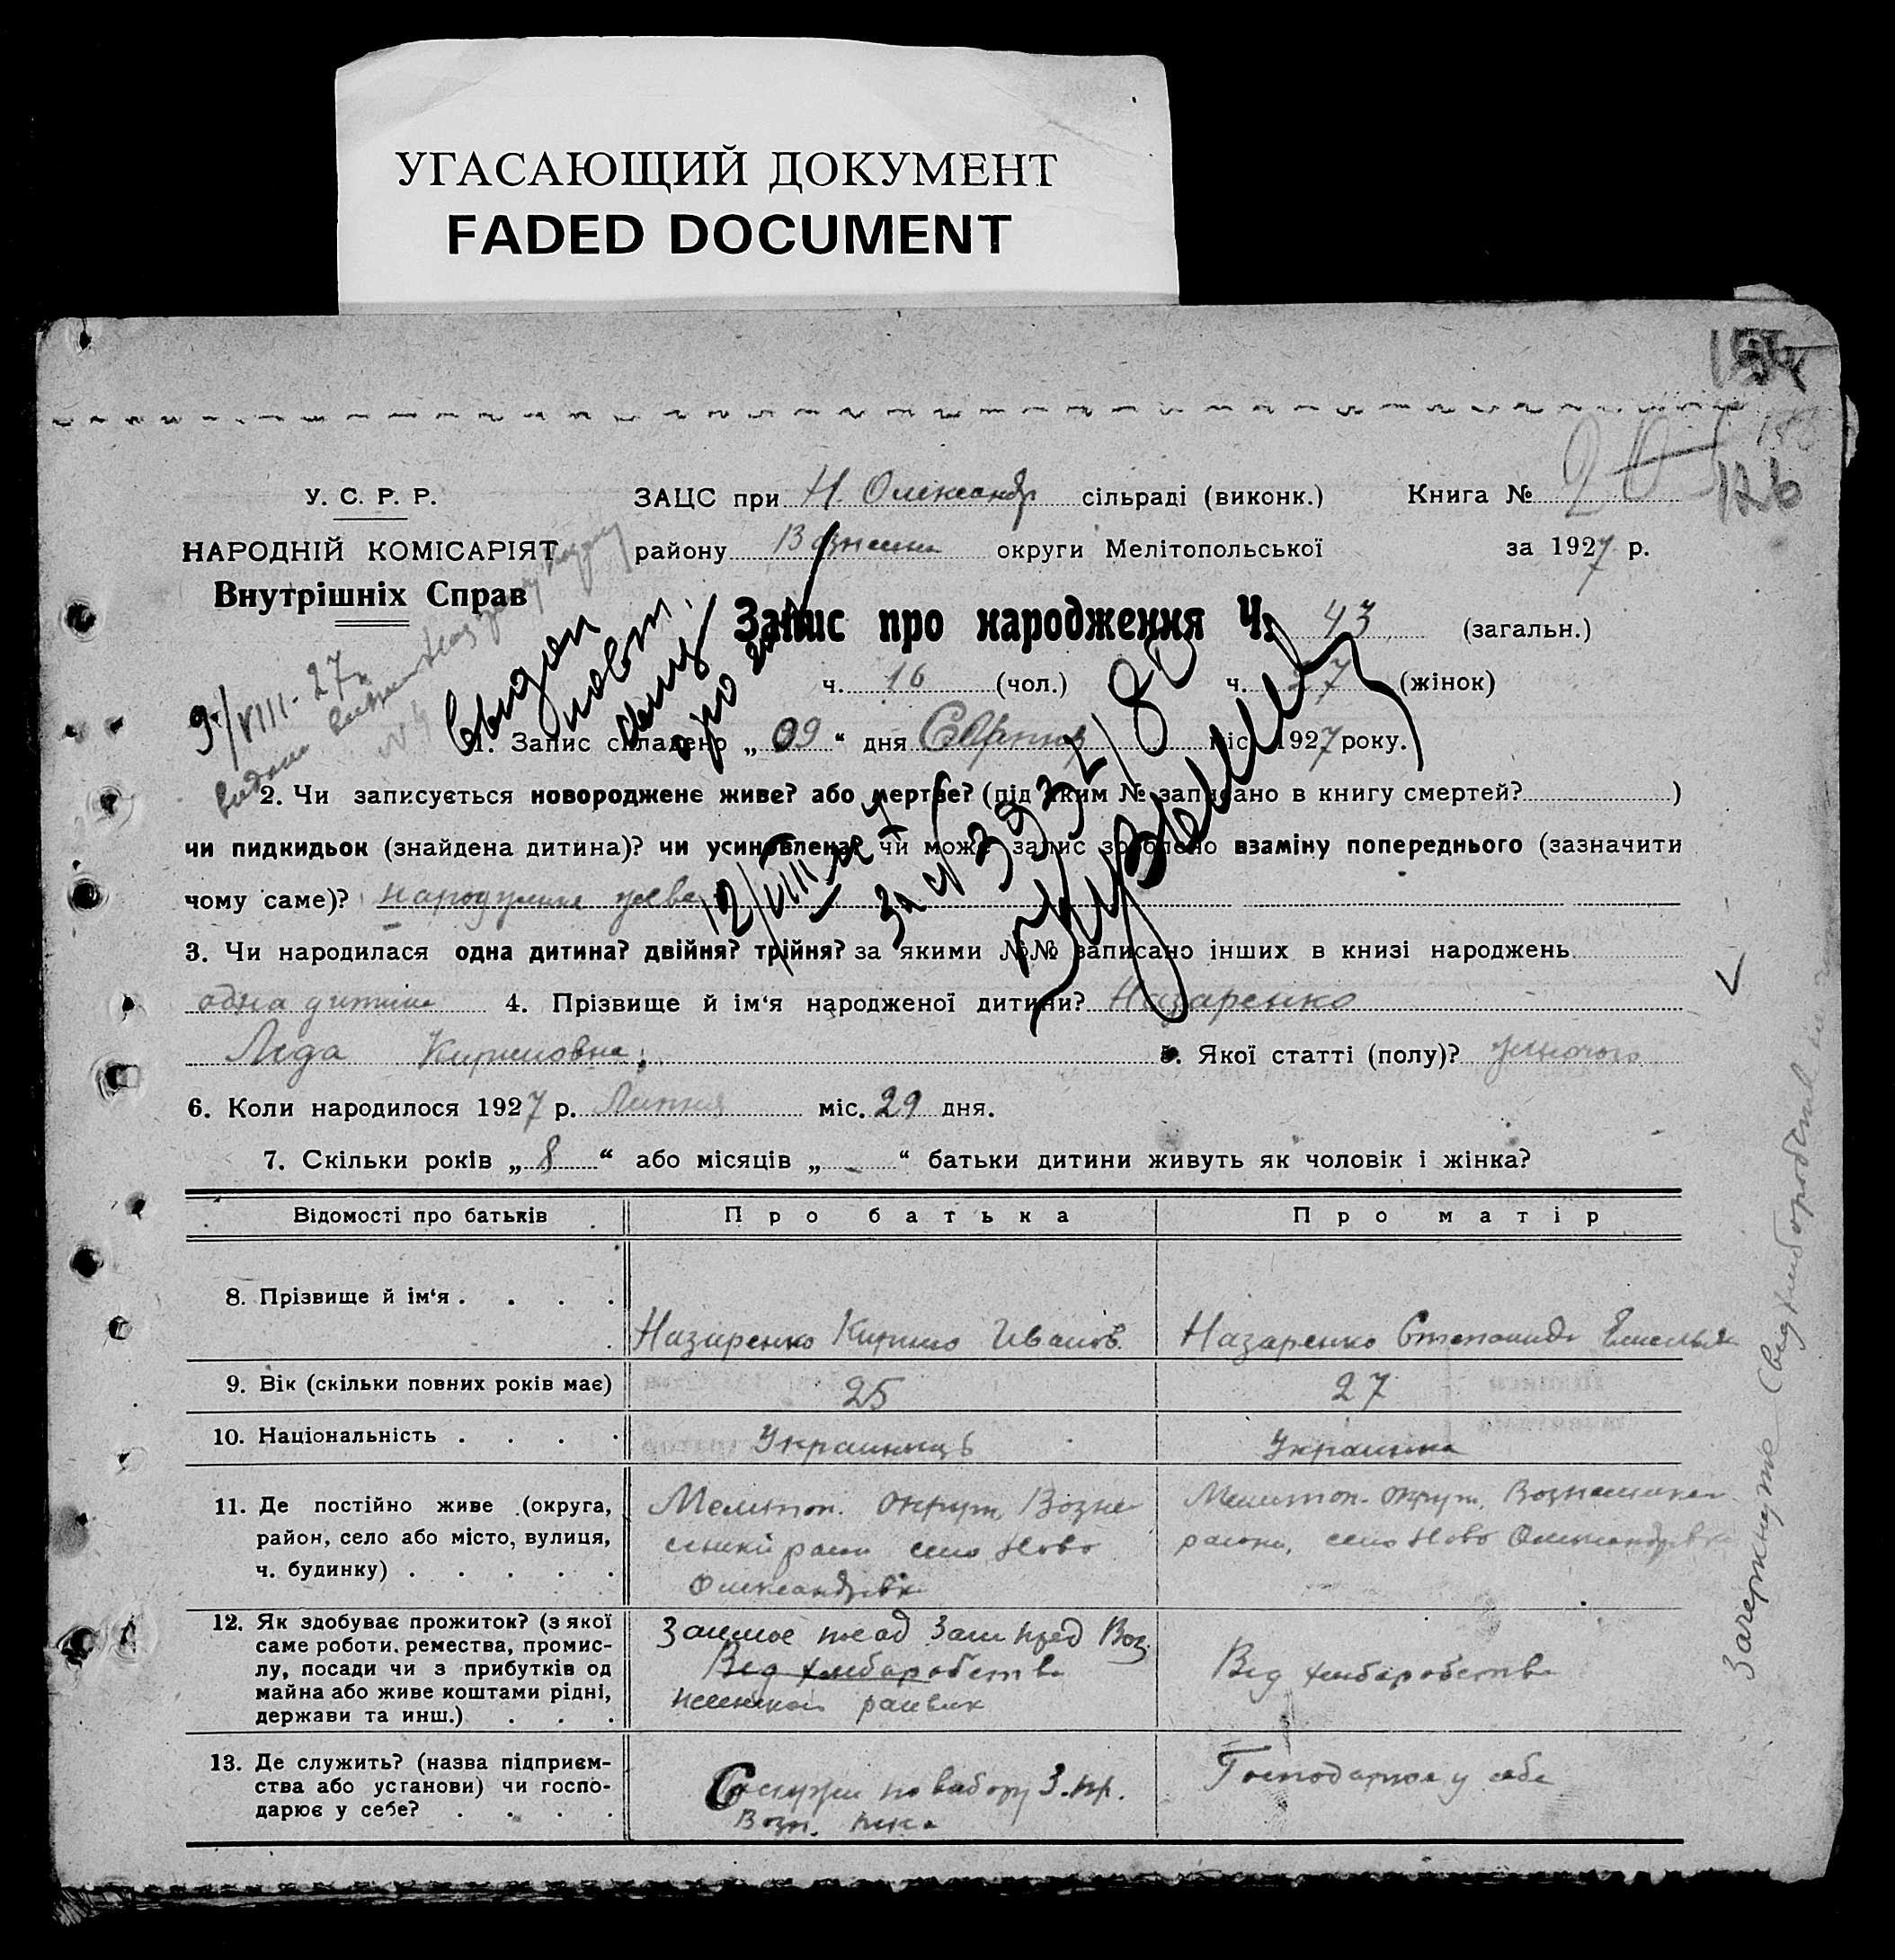 УГАСАЮЩИЙ ДОКУМЕНТ
FADED DOCUMENT
У. С. Р. Р.
НАРОДНІЙ КОМІСАРІЯТ
Внутрішніх Справ
ЗАЦС при Н. Олександр сільраді (виконк.)
Книга №
126
району округи Мелітопольської
за 1927 р.
Запис про народження Ч. 43 (загальн.)
ч. 16 (чол.) ч. 27 (жінок)
9/VIII-27
1. Запис складено „ 09 “ дня Серпня міс. 1927 року.
2. Чи записується новороджене живе? або мертве? (під яким № записано в книгу смертей? )
чи пидкидьок (знайдена дитина)? чи усиновлена? чи може запис зроблено взаміну попереднього (зазначити
чому саме)?
3. Чи народилася одна дитина? двійня? трійня? за якими №№ записано інших в книзі народжень
одна дитина 4. Прізвище й ім‘я народженої дитини? Назаренко
Лєда Кириловна; 5. Якої статті (полу)? жіночого
6. Коли народилося 1927 р. Липня міс. 29 дня.
7. Скільки років „ 8 “ або місяців „ - “ батьки дитини живуть як чоловік і жінка?
Відомості про батьків Про батька Про матір
8. Прізвище й ім‘я . . . .
Назаренко Кирило Иванов. Назаренко Степанида Емельян
9. Вік (скільки повних років має) 25 27
10. Національність . . . . Украинець Украинка
11. Де постійно живе (округа,
район, село або місто, вулиця,
ч. будинку) . . . . .
Мелитоп. округи Возне
сенский район село Ново
Олександрівка
Мелитоп. округи, Вознесенского
района, село Ново Олександрівка
12. Як здобуває прожиток? (з якої
саме роботи, ремества, промис-
лу, посади чи з прибутків од
майна або живе коштами рідні,
держави та инш.) . . .
Займає посад Зам пред Воз
Від хліборобства
несенского райвик
Від хліборобства
13. Де служить? (назва підприєм-
ства або установи) чи госпо-
дарює у себе? . . . .
по вибору З. пр.
Возн. рика
Господарює у себе
Зачеркнуте (від хліборобства)